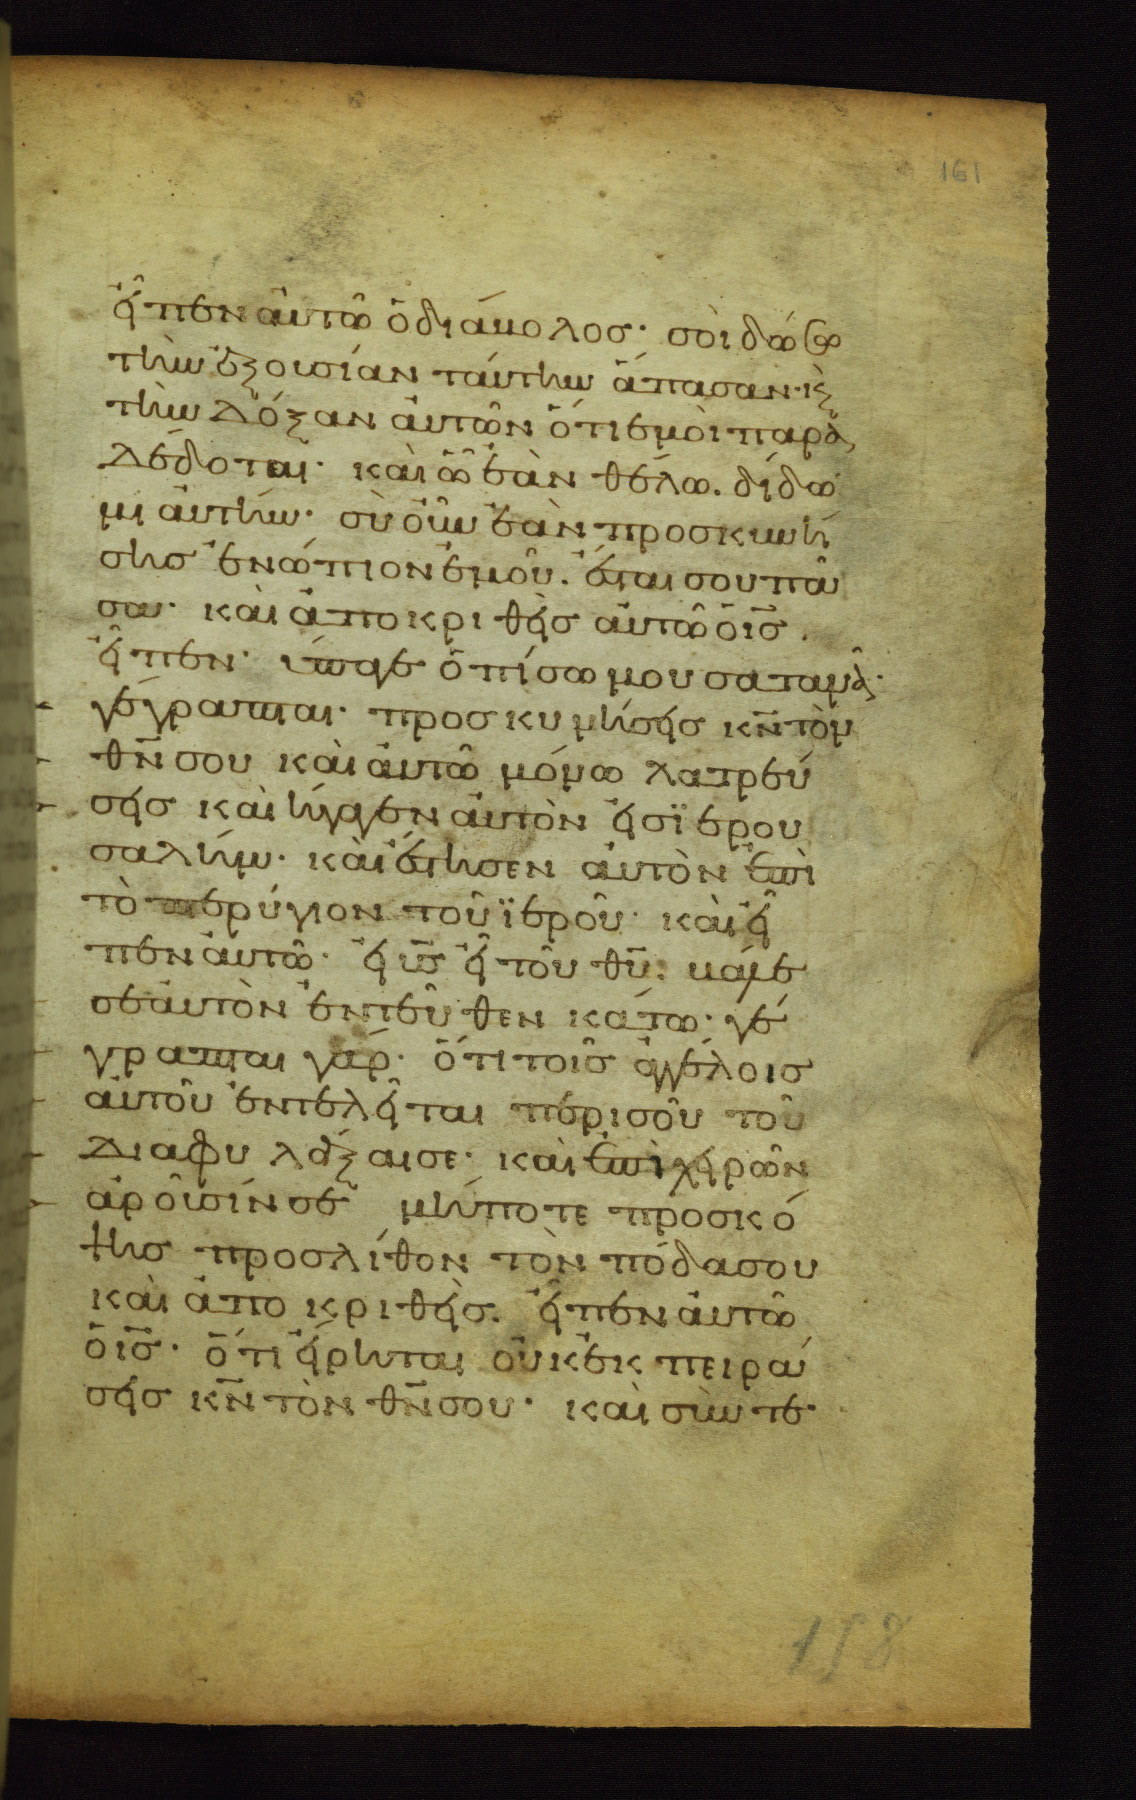 161
εἶπεν αὐτῶ ὁ διάβολος· σοὶ δώσω
τὴν ἐξουσίαν ταύτην ἅπασαν· κ̀
τὴν δόξαν αὐτῶν ὅτι ἐμοὶ παρα
δέδοται· καὶ ὧ ἐὰν θέλω. δίδω
μι αὐτήν· σὺ οὖν ἐὰν προσκυνή
σης ἐνώπιον ἐμοῦ. ἔσται σου πᾶ
σα· καὶ ἀποκριθεὶς αὐτῶ ὁ ις̅.
εἶπεν· ὕπαγε ὀπίσω μου σατανᾶ·
γέγραπται· προσκυνήσεις κν̅ τὸν
θν̅ σου καὶ αὐτῶ μόνω λατρεύ
σεις καὶ ἤγαγεν αὐτὸν εἰς ϊερου
σαλήμ· καὶ ἔστησεν αὐτὸν ἐπὶ
τὸ πτερύγιον τοῦ ϊεροῦ· καὶ εἶ
πεν αὐτῶ· εἰ υς̅ εἶ τοῦ θυ̅. βάλε
σεαυτὸν ἐντεῦθεν κάτω· γέ
γραπται γάρ· ὅτι τοῖς ἀγγέλοις
αὐτοῦ ἐντελεῖται πέρι σοῦ τοῦ
διαφυλάξαι σε· καὶ ἐπὶ χειρῶν
ἀροῦσίν σε μήποτε προσκό
ψης προς λίθον τὸν πόδα σου
καὶ ἀποκριθεὶς. εἶπεν αὐτῶ
ὁ ις̅· ὅτι εἴρηται οὐκ ἐκπειρά
σεις κν̅ τὸν θν̅ σου· καὶ συντε
158